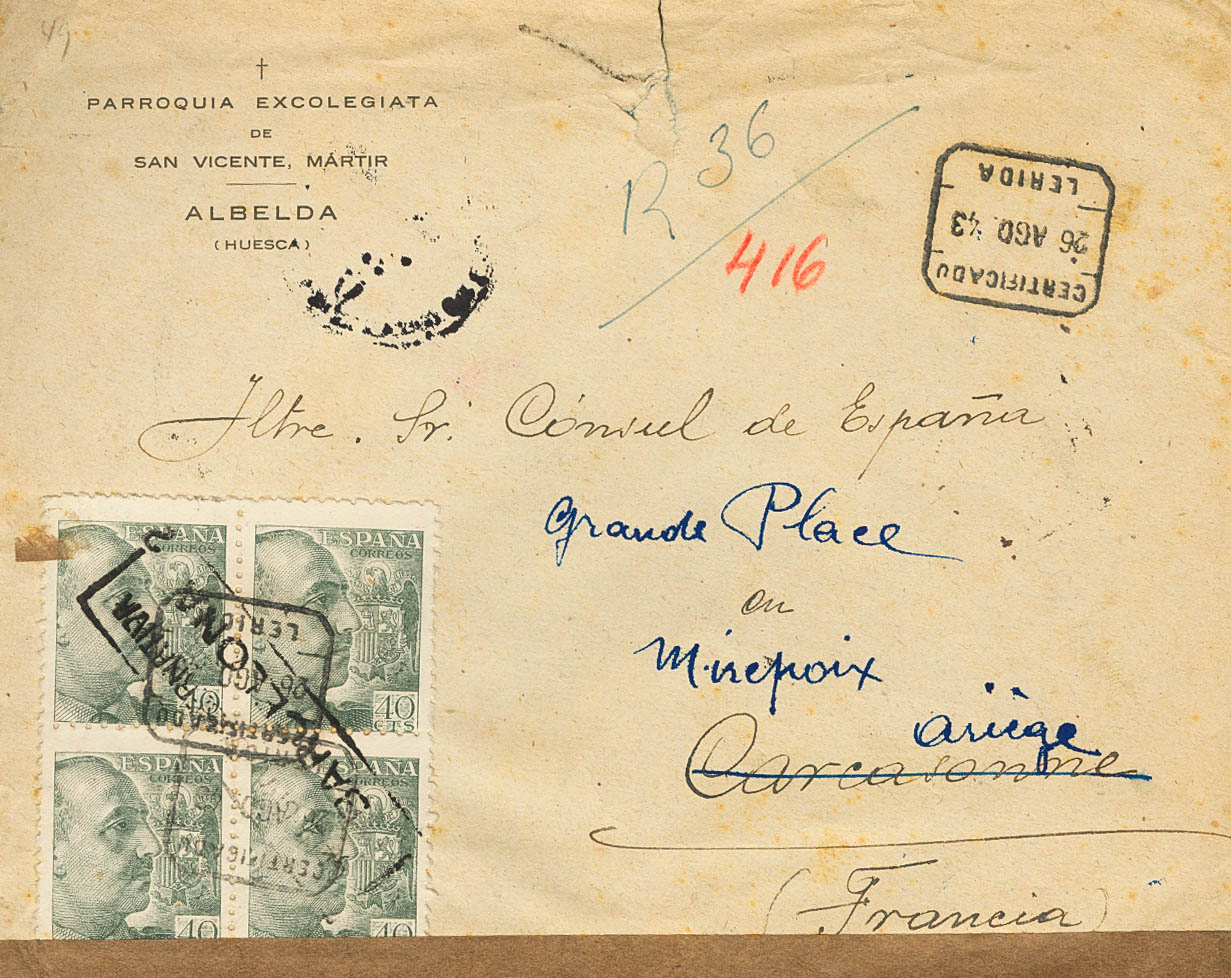 49
†
PARROQUIA EXCOLEGIATA
DE
SAN VICENTE, MÁRTIR
ALBELDA
(HUESCA)
R 36
416
CERTIFICADO
26 AGO 43
LERIDA
Iltre. Sr. Cónsul de España
Grande Place
en
Mirepoix
Ariège
Carcasonne
(Francia)
ESPAÑA
CORREOS
40
ESPAÑA
CORREOS
40
CTS
ESPAÑA
CORREOS
40
ESPAÑA
CORREOS
40
CERTIFICADO
LERID
CERTIFICADO